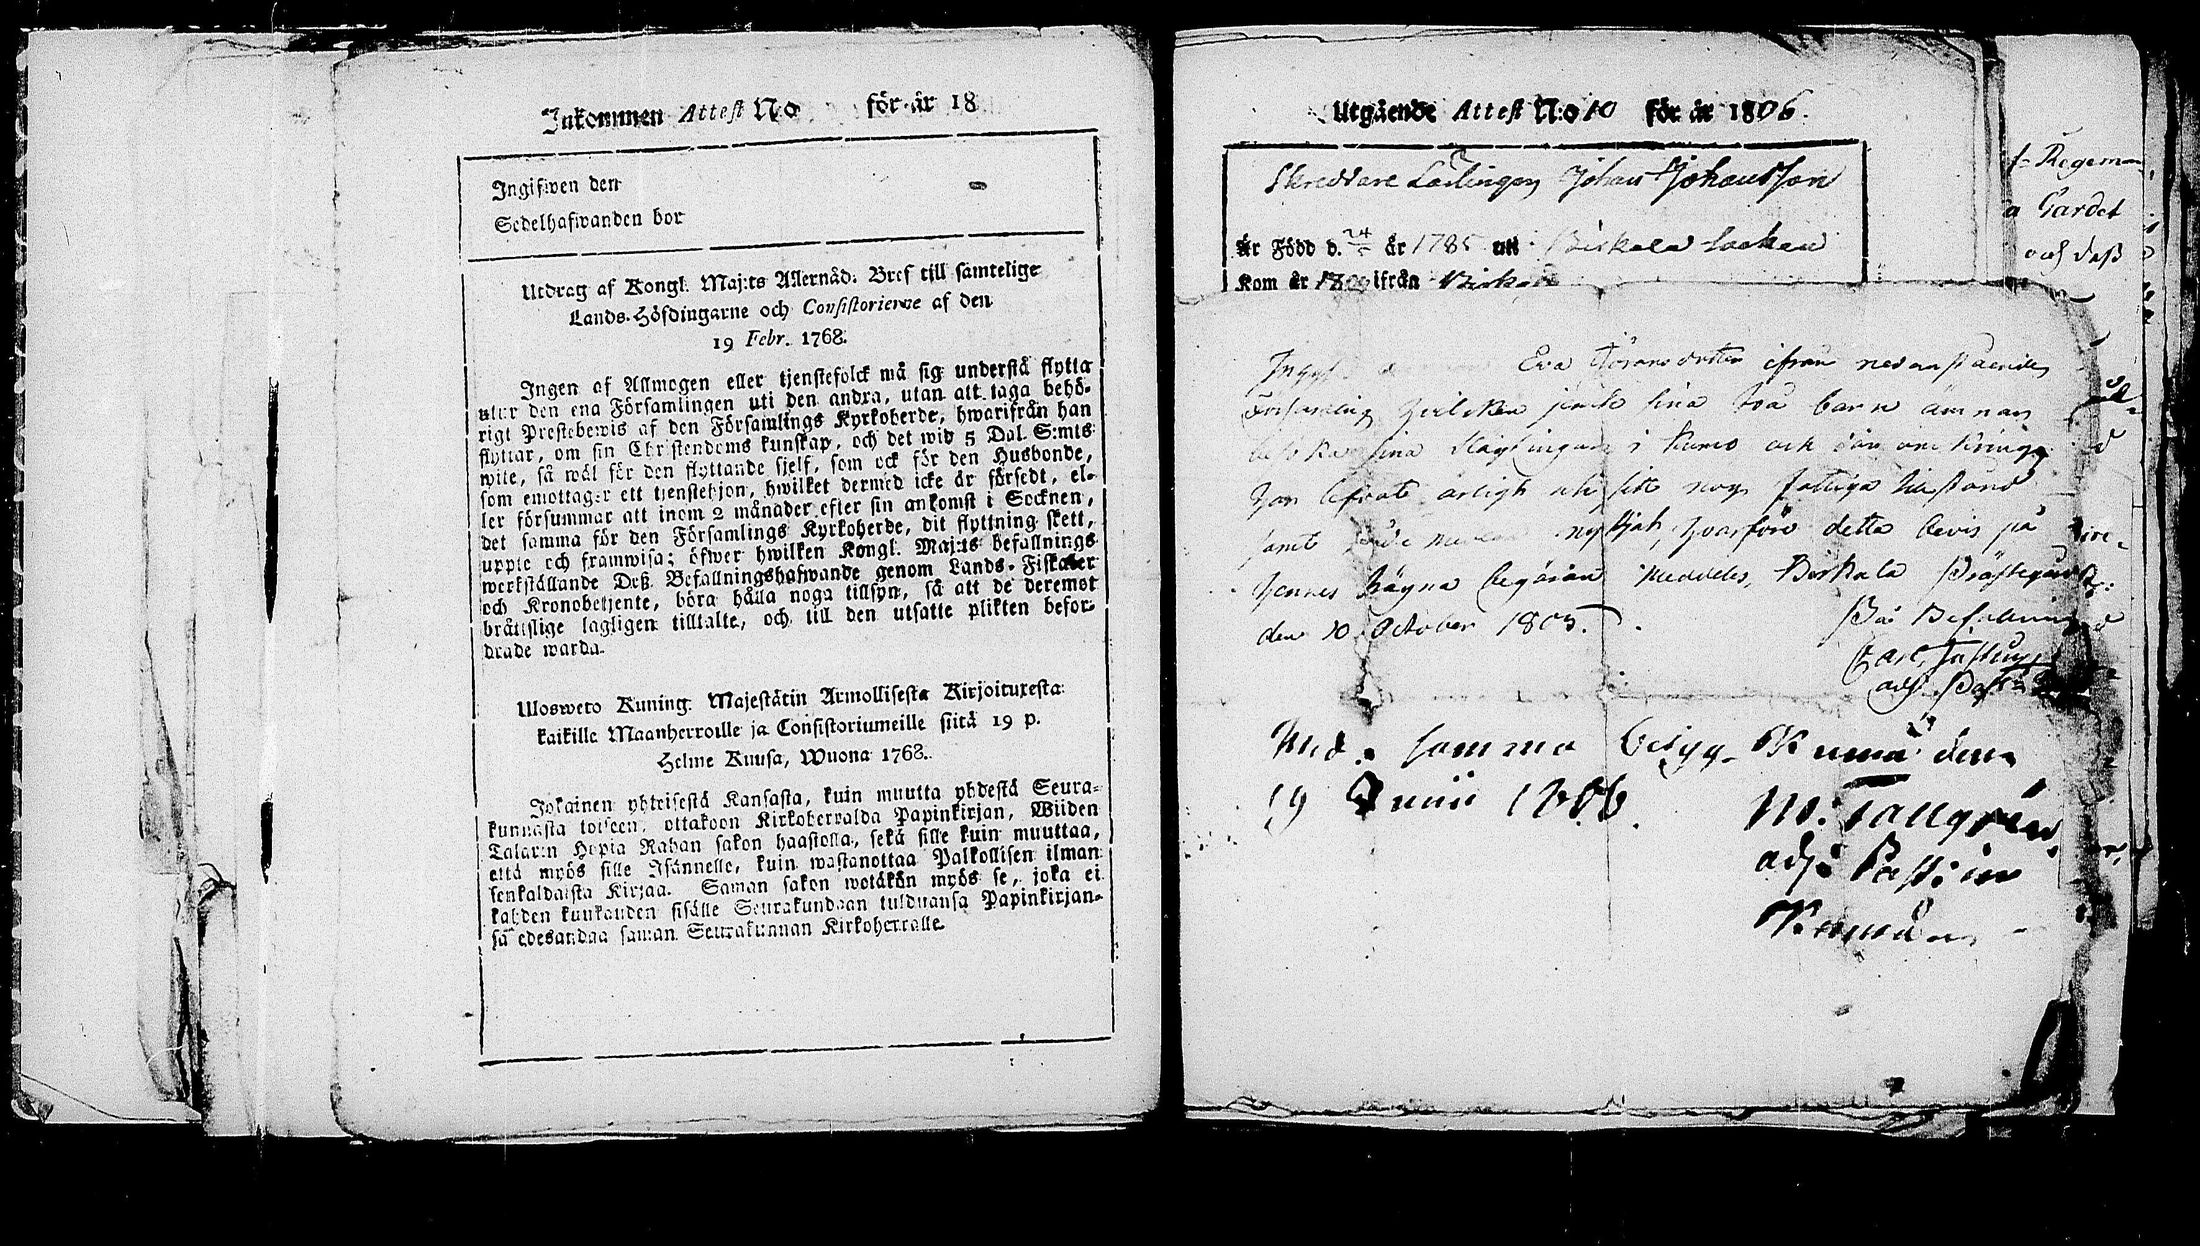 Inkommen Attest No för år 18
Ingifwen den
Sedelhafwanden bor
Utdrag af Kongl. Maj:ts Allernåd. Bref till samtelige
Lands-Höfdingarne och Consistorierne af den
19 Febr. 1768.
Ingen af Allmogen eller tjenstefolck må sig understå flytta
utur den ena Församlingen uti den andra, utan att taga behö-
rigt Prestebewis af den Församlings Kyrkoherde, hwarifrån han
flyttar, om sin Christendoms kunskap, och det wid 5 Dal. S:mts
wite, så wäl för den flyttande sjelf, som ock för den Husbonde,
som emottager ett tjenstehjon, hwilket dermed icke är försedt, el-
ler försummar att inom 2 månader efter sin ankomst i Socknen,
det samma för den Församlings Kyrkoherde, dit flyttning skett,
uppte och framwisa; öfwer hwilken Kongl. Maj:ts befallnings
werkställande Deß Befallningshafwande genom Lands-Fiskaler
och Kronobetjente, böra hålla noga tillsyn, så att de deremot
bråttslige lagligen tilltalte, och till den utsatte plikten befor-
drade warda.
Ulosweto Kuning. Majestätin Armollisesta Kirjoituxesta
kaikille Maanherroille ja Consistoriumeille siitä 19 p.
Helme Kuusa, Wuona 1768.
Jokainen yhteisestä Kansasta, kuin muutta yhdestä Seura-
kunnasta toiseen, ottakoon Kirkoherralda Papinkirjan, Wiiden
Talarin Hopia Rahan sakon haastolla, sekä sille kuin muuttaa,
että myös sille Isännelle, kuin wastanottaa Palkollisen ilman
senkaldaista Kirjaa. Saman sakon wetäkön myös se, joka ei
kahden kuukauden sisälle Seurakundaan tulduansa Papinkirjan-
sa edesandaa saman Seurakunnan Kirkoherralle.
Utgående Attest N:o 10 för år 1806.
Skreddare Lärlingen Johan Johansson
Är Född d. 24 år 1785 uti Birkala Sochen
Kom år ifrån
Eva Göransdotter ifrån nedanstående
Församling hvilken jemte sina två barn ämnar
besöka sina Släktingar i Kumo och där omkring
har lefvat ärligt uti sitt nog fattiga tillstånd
samt nyttjat, hvarföre detta bevis på
hennes begäran meddeles, Birkala Prästegård
den 10 October 1805.
På Befallning
Carl
adj. Past.
Med samma betyg. Kumå den
19 Junii 1806.
M: Tallgrén
adj: Past: in
Kumå
f- Regem
a Gardet
och daß